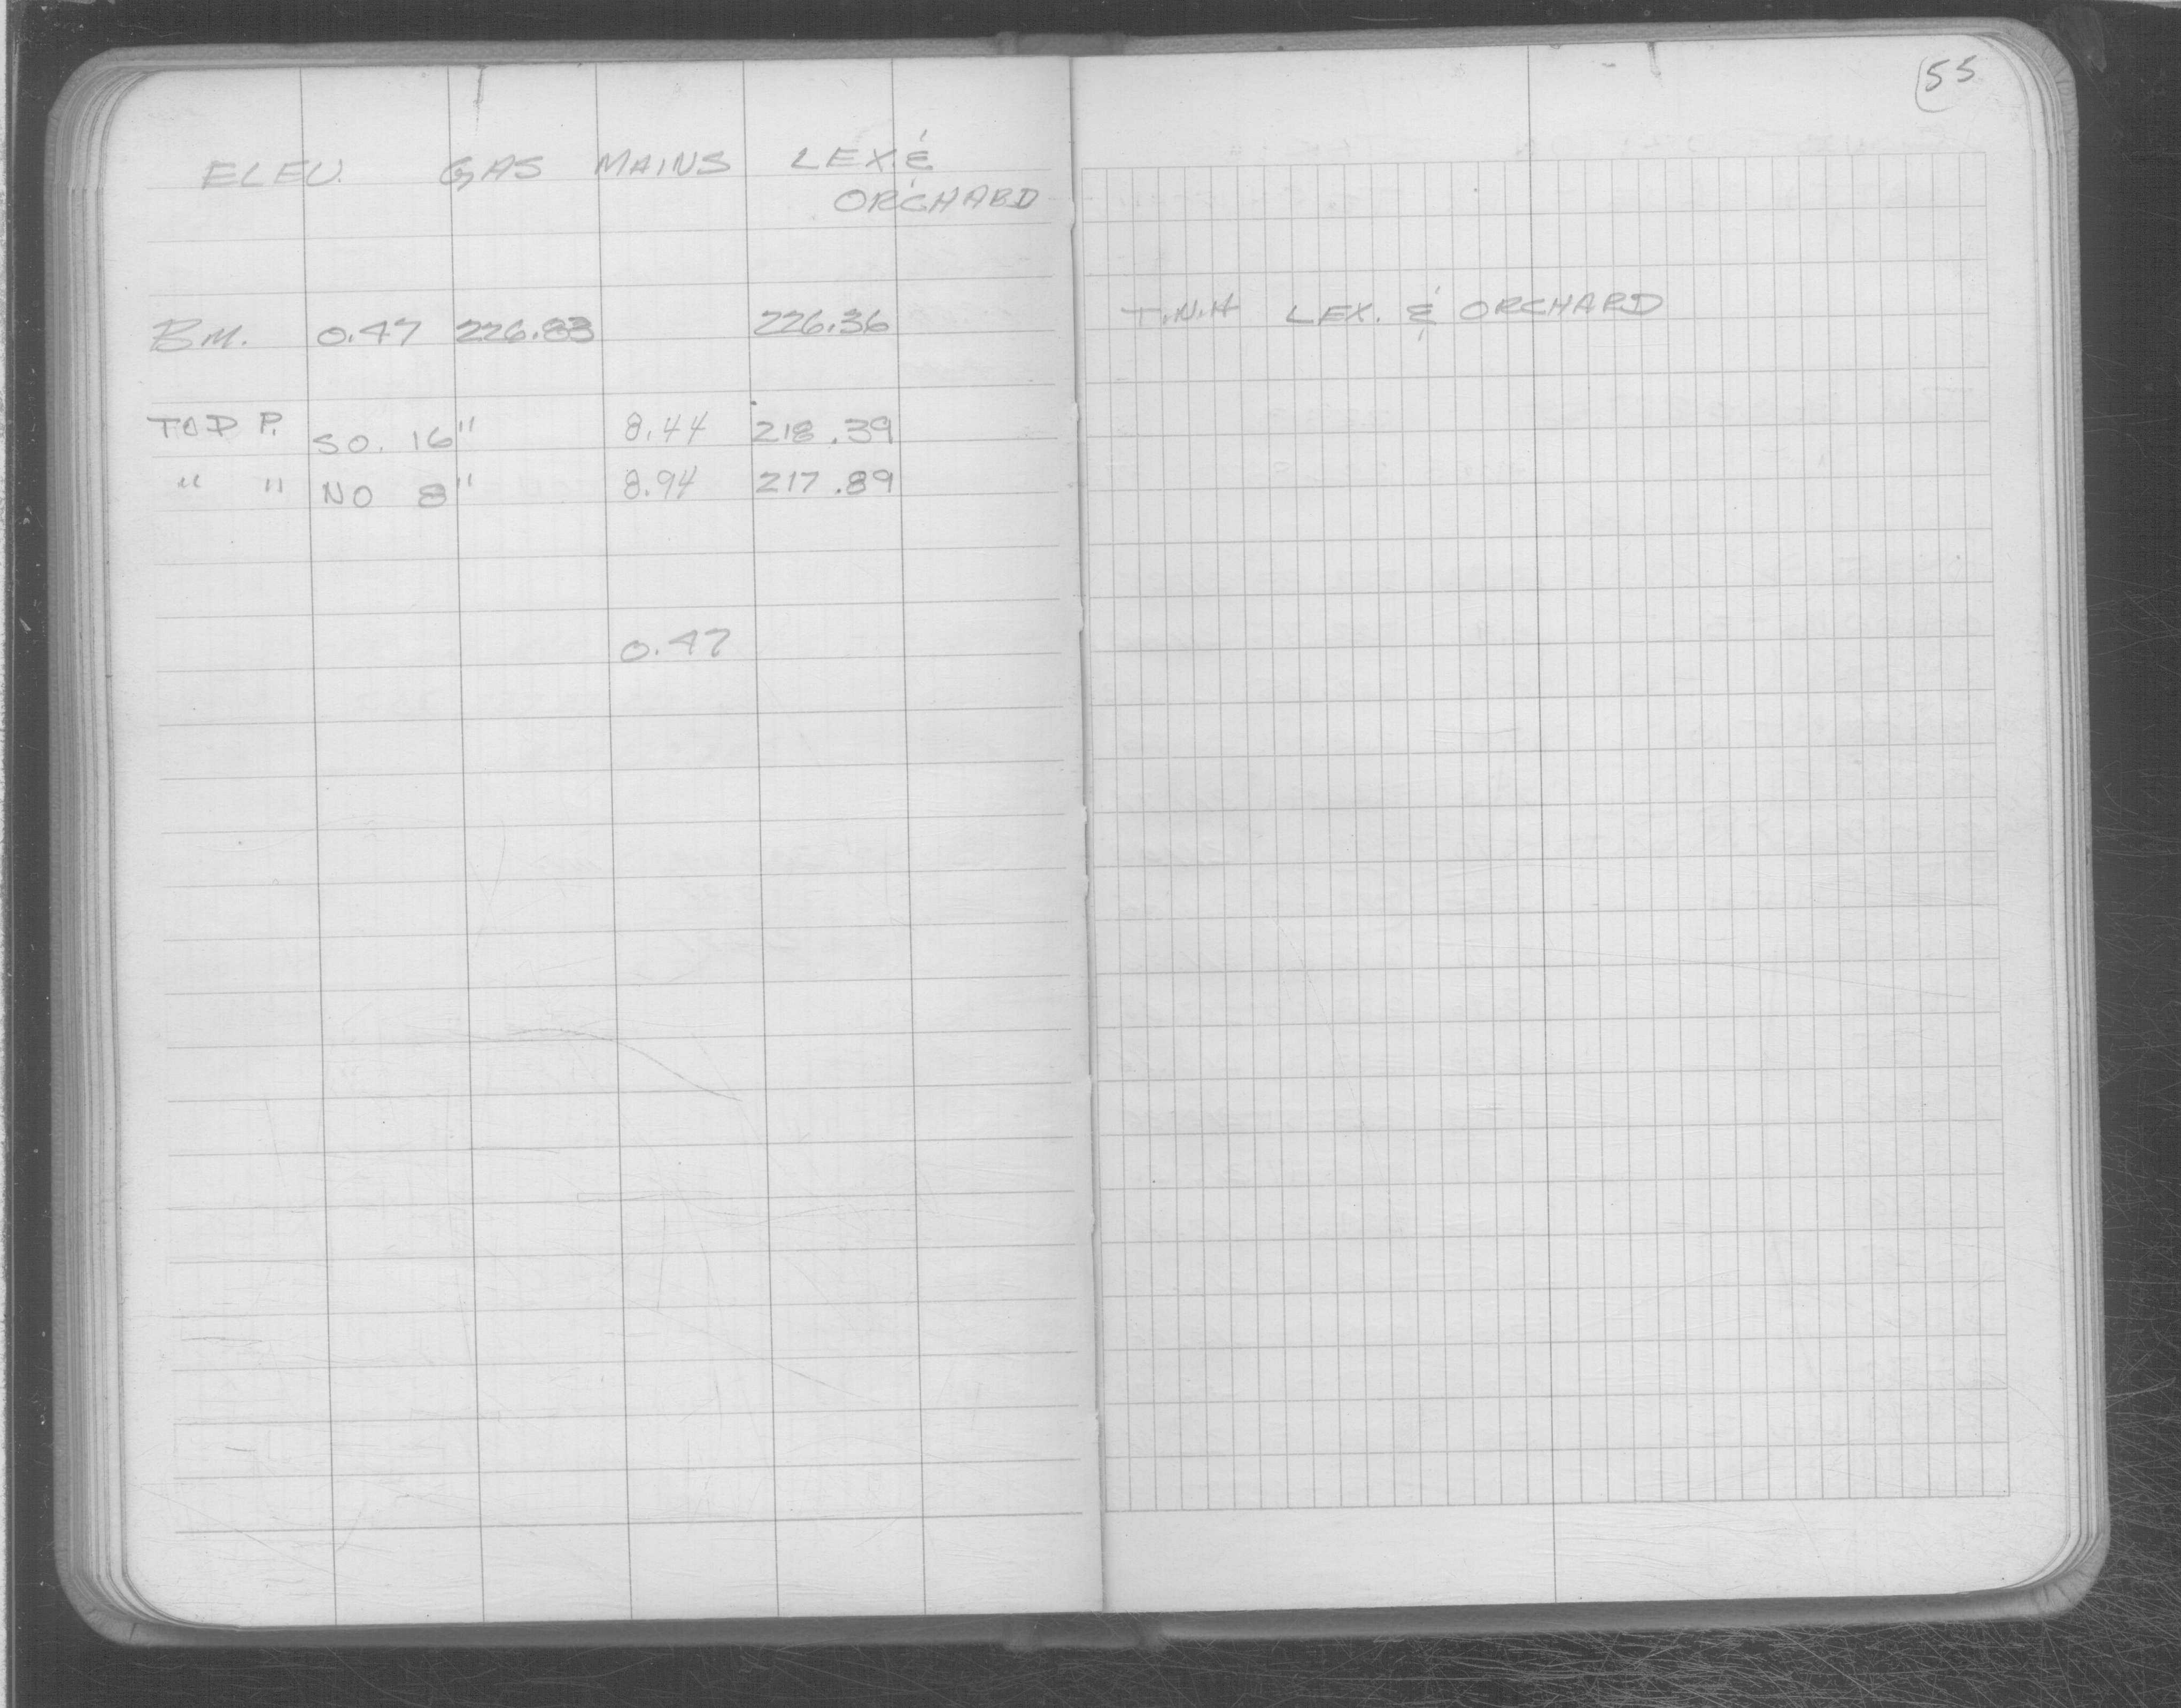 55
ELEV. GAS MAINS LEX. &
ORCHARD
BM. 0.47 226.83 226.36
T.N.H LEX. & ORCHARD
TOP P. SO. 16" 8.44 218.39
" " NO 8" 8.94 217.89
0.47